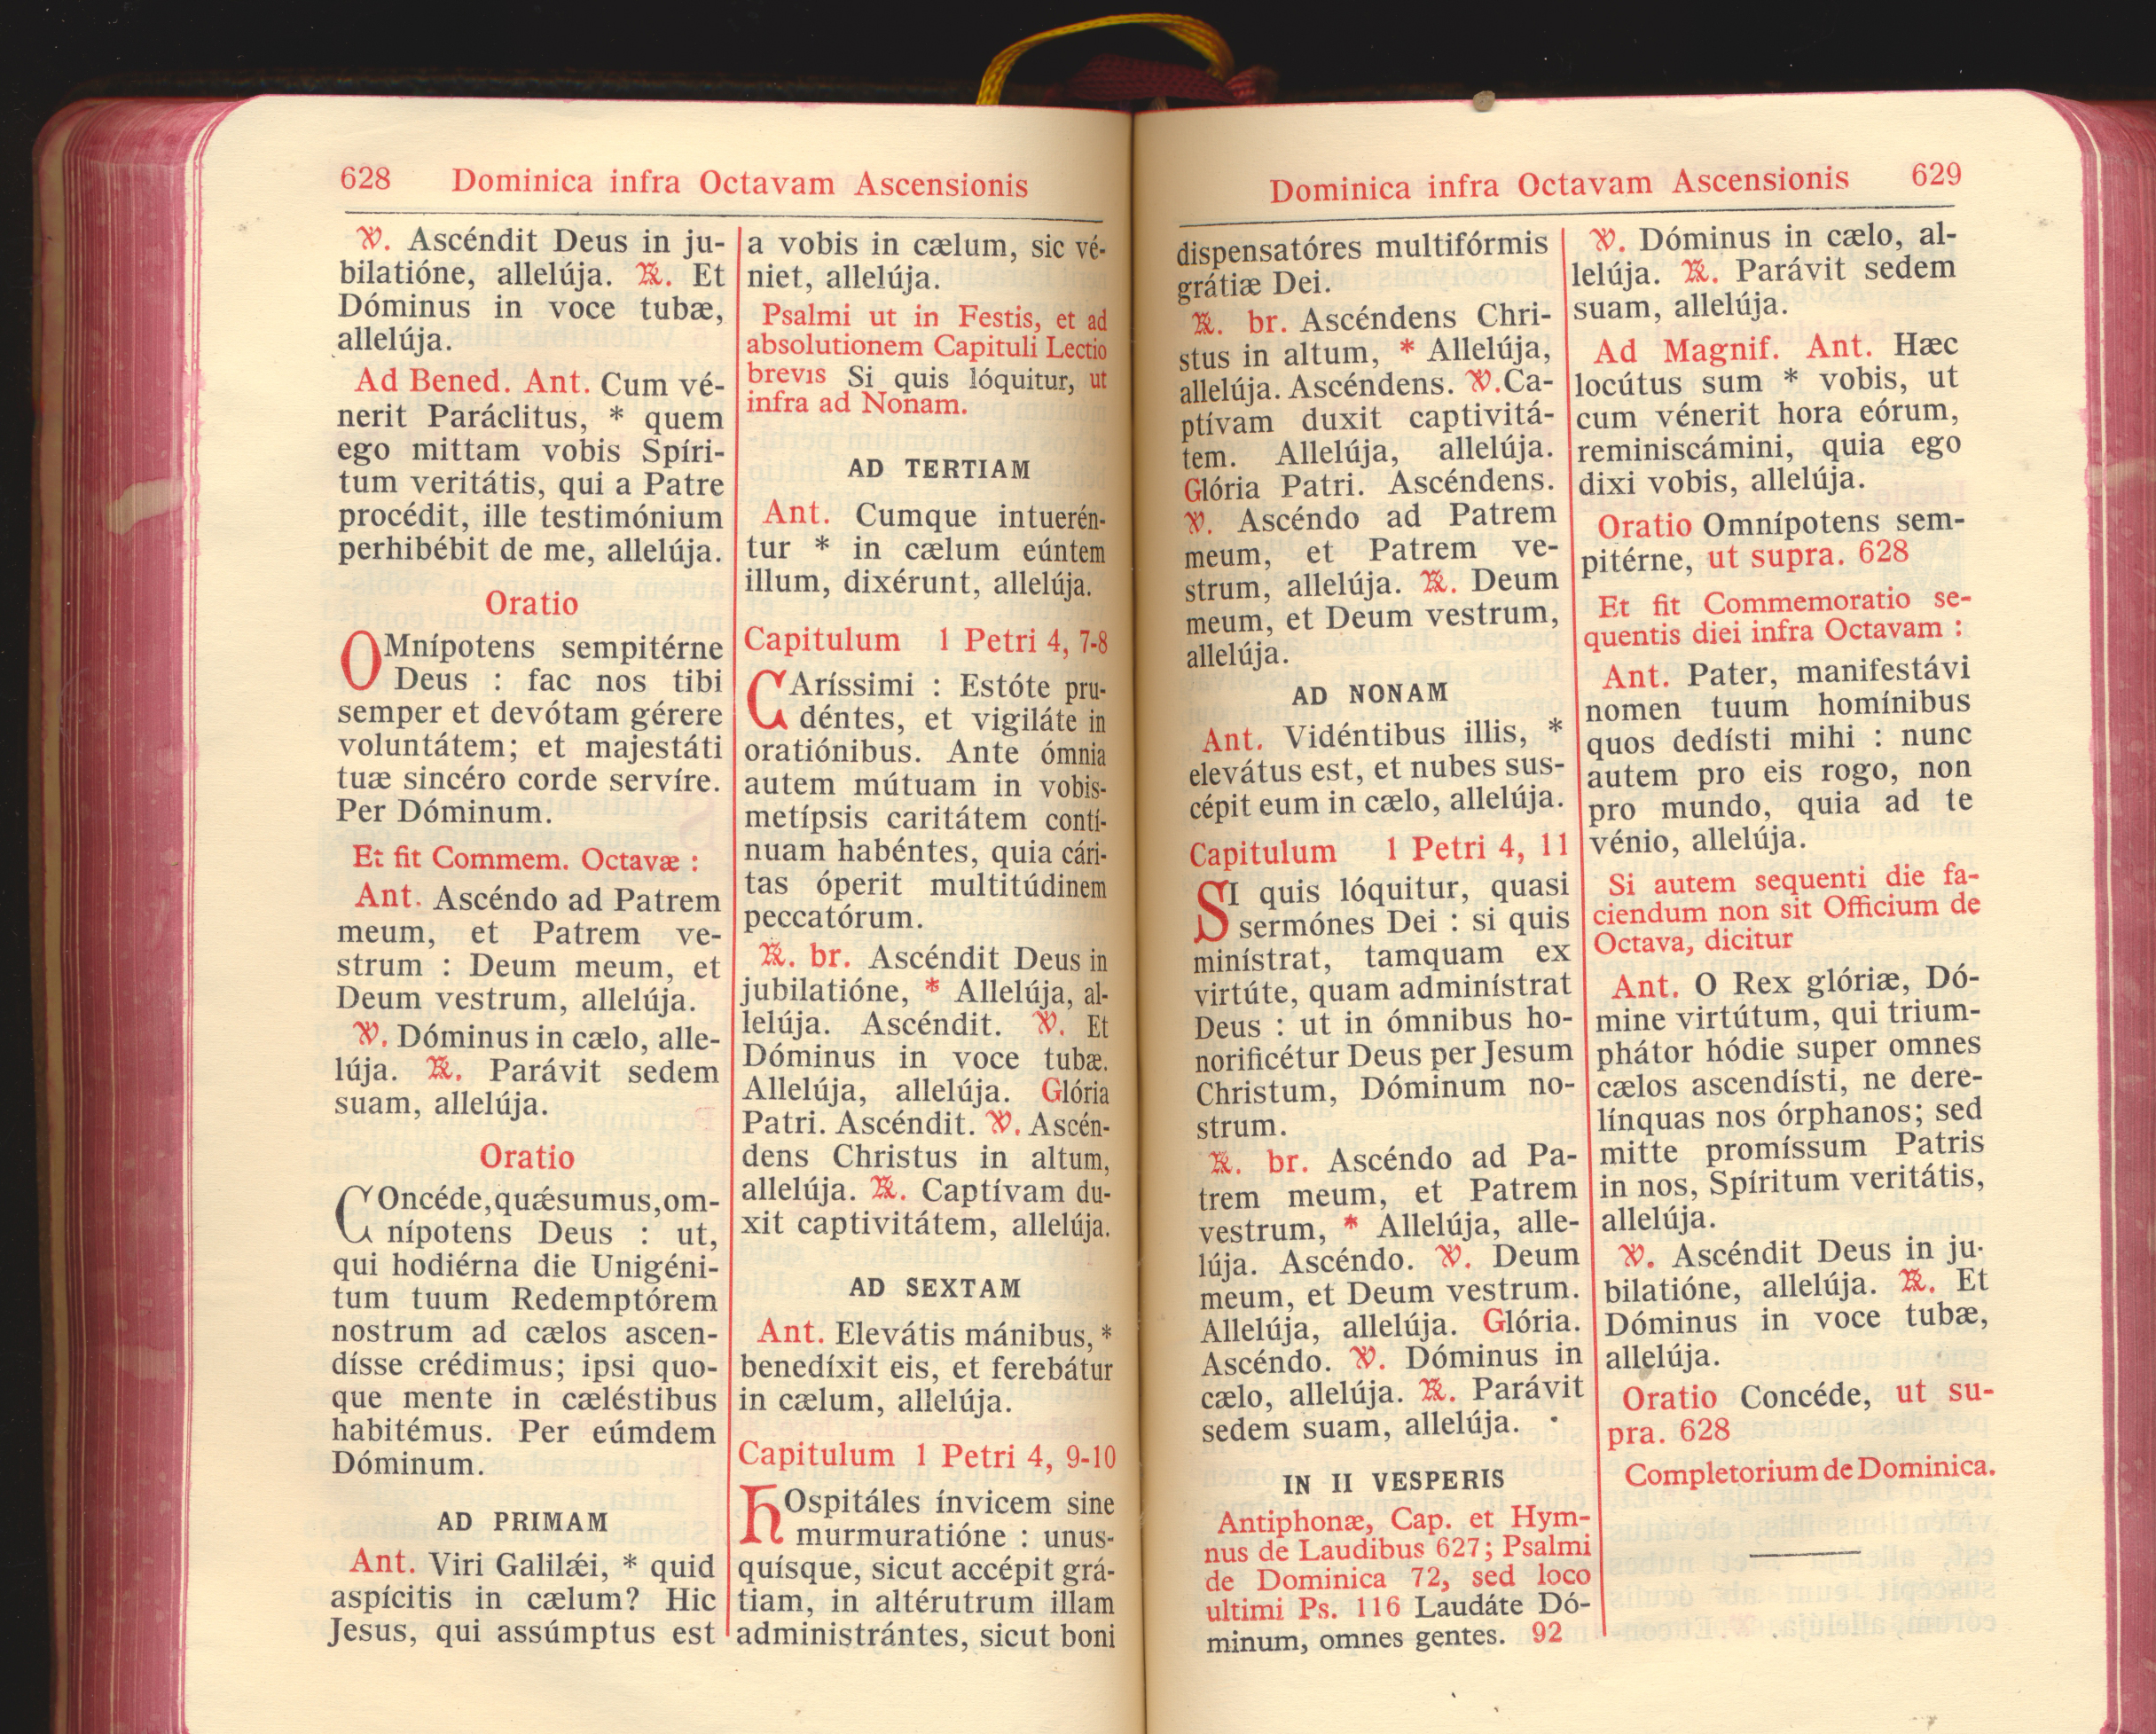 628 Dominica infra Octavam Ascensionis
℣. Ascéndit Deus in ju-
bilatióne, allelúja. ℟. Et
Dóminus in voce tubæ,
allelúja.
Ad Bened. Ant. Cum vé-
nerit Paráclitus, * quem
ego mittam vobis Spíri-
tum veritátis, qui a Patre
procédit, ille testimónium
perhibébit de me, allelúja.
Oratio
OMnípotens sempitérne
Deus : fac nos tibi
semper et devótam gérere
voluntátem; et majestáti
tuæ sincéro corde servíre.
Per Dóminum.
Et fit Commem. Octavæ :
Ant. Ascéndo ad Patrem
meum, et Patrem ve-
strum : Deum meum, et
Deum vestrum, allelúja.
℣. Dóminus in cælo, alle-
lúja. ℟. Parávit sedem
suam, allelúja.
Oratio
COncéde, quǽsumus, om-
nípotens Deus : ut,
qui hodiérna die Unigéni-
tum tuum Redemptórem
nostrum ad cælos ascen-
dísse crédimus; ipsi quo-
que mente in cæléstibus
habitémus. Per eúmdem
Dóminum.
AD PRIMAM
Ant. Viri Galilǽi, * quid
aspícitis in cælum? Hic
Jesus, qui assúmptus est
a vobis in cælum, sic vé-
niet, allelúja.
Psalmi ut in Festis, et ad
absolutionem Capituli Lectio
brevis Si quis lóquitur, ut
infra ad Nonam.
AD TERTIAM
Ant. Cumque intuerén-
tur * in cælum eúntem
illum, dixérunt, allelúja.
Capitulum 1 Petri 4, 7-8
CAríssimi : Estóte pru-
déntes, et vigiláte in
oratiónibus. Ante ómnia
autem mútuam in vobis-
metípsis caritátem contí-
nuam habéntes, quia cári-
tas óperit multitúdinem
peccatórum.
℟. br. Ascéndit Deus in
jubilatióne, * Allelúja, al-
lelúja. Ascéndit. ℣. Et
Dóminus in voce tubæ.
Allelúja, allelúja. Glória
Patri. Ascéndit. ℣. Ascén-
dens Christus in altum,
allelúja. ℟. Captívam du-
xit captivitátem, allelúja.
AD SEXTAM
Ant. Elevátis mánibus, *
benedíxit eis, et ferebátur
in cælum, allelúja.
Capitulum 1 Petri 4, 9-10
HOspitáles ínvicem sine
murmuratióne : unus-
quísque, sicut accépit grá-
tiam, in altérutrum illam
administrántes, sicut boni
Dominica infra Octavam Ascensionis 629
dispensatóres multifórmis
grátiæ Dei.
℟. br. Ascéndens Chri-
stus in altum, * Allelúja,
allelúja. Ascéndens. ℣. Ca-
ptívam duxit captivitá-
tem. Allelúja, allelúja.
Glória Patri. Ascéndens.
℣. Ascéndo ad Patrem
meum, et Patrem ve-
strum, allelúja. ℟. Deum
meum, et Deum vestrum,
allelúja.
AD NONAM
Ant. Vidéntibus illis, *
elevátus est, et nubes sus-
cépit eum in cælo, allelúja.
Capitulum 1 Petri 4, 11
SI quis lóquitur, quasi
sermónes Dei : si quis
minístrat, tamquam ex
virtúte, quam adminístrat
Deus : ut in ómnibus ho-
norificétur Deus per Jesum
Christum, Dóminum no-
strum.
℟. br. Ascéndo ad Pa-
trem meum, et Patrem
vestrum, * Allelúja, alle-
lúja. Ascéndo. ℣. Deum
meum, et Deum vestrum.
Allelúja, allelúja. Glória.
Ascéndo. ℣. Dóminus in
cælo, allelúja. ℟. Parávit
sedem suam, allelúja.
IN II VESPERIS
Antiphonæ, Cap. et Hym-
nus de Laudibus 627; Psalmi
de Dominica 72, sed loco
ultimi Ps. 116 Laudáte Dó-
minum, omnes gentes. 92
℣. Dóminus in cælo, al-
lelúja. ℟. Parávit sedem
suam, allelúja.
Ad Magnif. Ant. Hæc
locútus sum * vobis, ut
cum vénerit hora eórum,
reminiscámini, quia ego
dixi vobis, allelúja.
Oratio Omnípotens sem-
pitérne, ut supra. 628
Et fit Commemoratio se-
quentis diei infra Octavam :
Ant. Pater, manifestávi
nomen tuum homínibus
quos dedísti mihi : nunc
autem pro eis rogo, non
pro mundo, quia ad te
vénio, allelúja.
Si autem sequenti die fa-
ciendum non sit Officium de
Octava, dicitur
Ant. O Rex glóriæ, Dó-
mine virtútum, qui trium-
phátor hódie super omnes
cælos ascendísti, ne dere-
línquas nos órphanos; sed
mitte promíssum Patris
in nos, Spíritum veritátis,
allelúja.
℣. Ascéndit Deus in ju-
bilatióne, allelúja. ℟. Et
Dóminus in voce tubæ,
allelúja.
Oratio Concéde, ut su-
pra. 628
Completorium de Dominica.